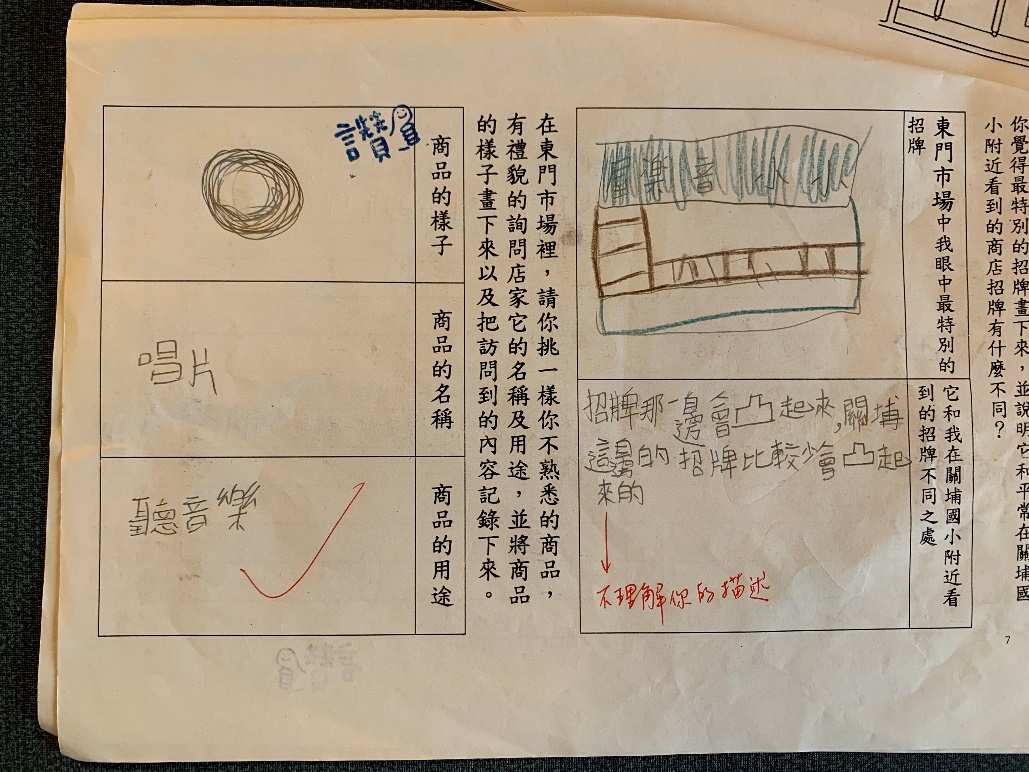 你覺得最特別的招牌畫下來，並說明它和平常在關埔國
小附近看到的商店招牌有什麼不同？
東門市場中我眼中最特別的
招牌
音樂
它和我在關埔國小附近看
到的招牌不同之處
招牌那一邊會凸起來,關埔
這邊的招牌比較少會凸起
來的
不理解你的描述
在東門市場裡，請你挑一樣你不熟悉的商品，
有禮貌的詢問店家它的名稱及用途，並將商品
的樣子畫下來以及把訪問到的內容記錄下來。
商品的樣子
讚
商品的名稱
唱片
商品的用途
聽音樂
7